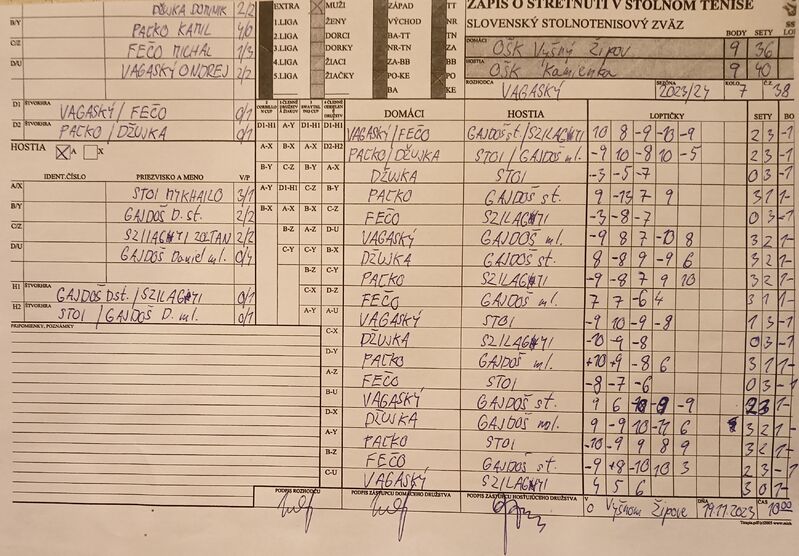 ZÁPIS O STRETNUTÍ V STOLNOM TENISE
SLOVENSKÝ STOLNOTENISOVÝ ZVÄZ
EXTRA MUŽI ZÁPAD TT
1.LIGA ŽENY VÝCHOD NR
2.LIGA DORCI BA-TT TN
3.LIGA DORKY NR-TN ZA
4.LIGA ŽIACI ZA-BB BB
5.LIGA ŽIAČKY PO-KE PO
BA KE
BODY SETY
DOMÁCI OŠK Vyšný Žipov 9 36
HOSTIA OŠK Kamienka 9 40
ROZHODCA VAGASKÝ SEZÓNA 2023/24 KOLO 7 Č. 38
DŽUJKA DOMINIK 2/2
B/Y PAĽKO KAMIL 4/0
C/Z FEČO MICHAL 1/3
D/U VAGASKÝ ONDREJ 2/2
D1 ŠTVORHRA VAGASKÝ / FEČO 0/1
D2 ŠTVORHRA PAĽKO / DŽUJKA 0/1
HOSTIA A X
IDENT.ČÍSLO PRIEZVISKO A MENO V/P
A/X STOI MYKHAILO 3/1
B/Y GAJDOŠ D. st. 2/2
C/Z SZILAGYI ZOLTAN 2/2
D/U GAJDOŠ Daniel ml. 0/4
H1 ŠTVORHRA GAJDOŠ D st. / SZILAGYI 0/1
H2 ŠTVORHRA STOI / GAJDOŠ D. ml. 0/1
PRIPOMIENKY, POZNÁMKY
DOMÁCI HOSTIA LOPTIČKY SETY BO
D1-H1 A-Y D1-H1 D1-H1 VAGASKÝ / FEČO GAJDOŠ st. / SZILAGYI 10 8 -9 -10 -9 2 3 -1
A-X B-X A-X D2-H2 PAĽKO / DŽUJKA STOI / GAJDOŠ ml. -9 10 -8 10 -5 2 3 -1
B-Y C-Z B-Y A-X DŽUJKA STOI -3 -5 -7 0 3 -1
A-Y D1-H1 C-Z B-Y PAĽKO GAJDOŠ st. 9 -13 7 9 3 1 1-
B-X A-X B-X C-Z FEČO SZILAGYI -3 -8 -7 0 3 -1
B-Z A-Z D-U VAGASKÝ GAJDOŠ ml. -9 8 7 -10 8 3 2 1-
C-Y C-Y B-X DŽUJKA GAJDOŠ st. 8 -8 9 -9 6 3 2 1-
B-Z C-Y PAĽKO SZILAGYI -9 -8 7 9 10 3 2 1-
C-X D-Z FEČO GAJDOŠ ml. 7 7 -6 4 3 1 1-
A-Y A-U VAGASKÝ STOI -9 10 -9 -8 1 3 -1
C-X DŽUJKA SZILAGYI -10 -9 -8 0 3 -1
D-Y PAĽKO GAJDOŠ ml. +10 +9 -8 6 3 1 1-
A-Z FEČO STOI -8 -7 -6 0 3 -1
B-U VAGASKÝ GAJDOŠ st. 9 6 -10 -9 -9 2 3
D-X DŽUJKA GAJDOŠ ml. 9 -9 10 -11 6 3 2 1-
A-Y PAĽKO STOI -10 -9 9 8 9 3 2 1-
B-Z FEČO GAJDOŠ st. -9 +8 -10 10 3 2 3 -1
C-U VAGASKÝ SZILAGYI 4 5 6 3 0 1-
PODPIS ROZHODCU PODPIS ZÁSTUPCU DOMÁCEHO DRUŽSTVA PODPIS ZÁSTUPCU HOSŤUJÚCEHO DRUŽSTVA V Vyšnom Žipove DŇA 19.11.2023 ČAS 10:00